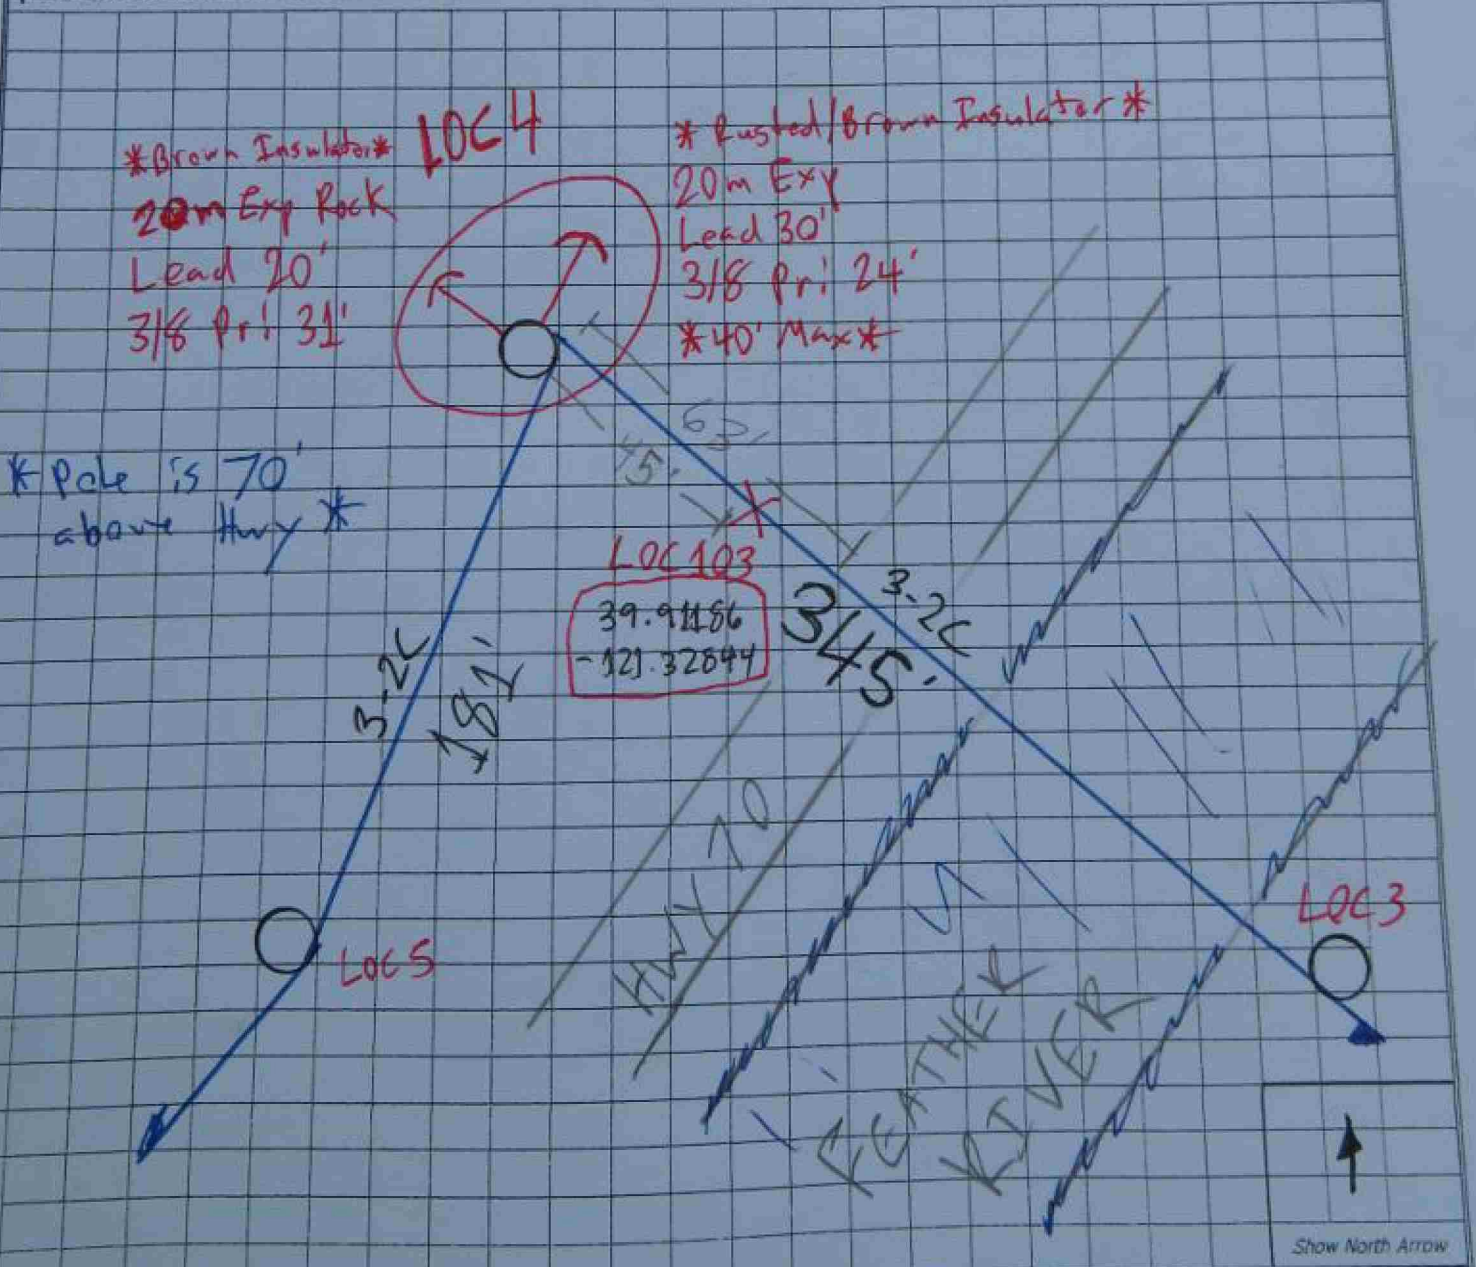 LOC4
*Brown Insulator*
20m Exp Rock
Lead 20'
3/8 Pri 31'
*Rusted/Brown Insulator*
20m Exy
Lead 30'
3/8 Pri 24'
*40' Max*
*Pole is 70'
above Hwy*
63'
45'
LOC103
39.91186
-121.32844
345'
3-2C
3-2C
181'
HWY 70
LOC3
LOC5
FEATHER
RIVER
Show North Arrow